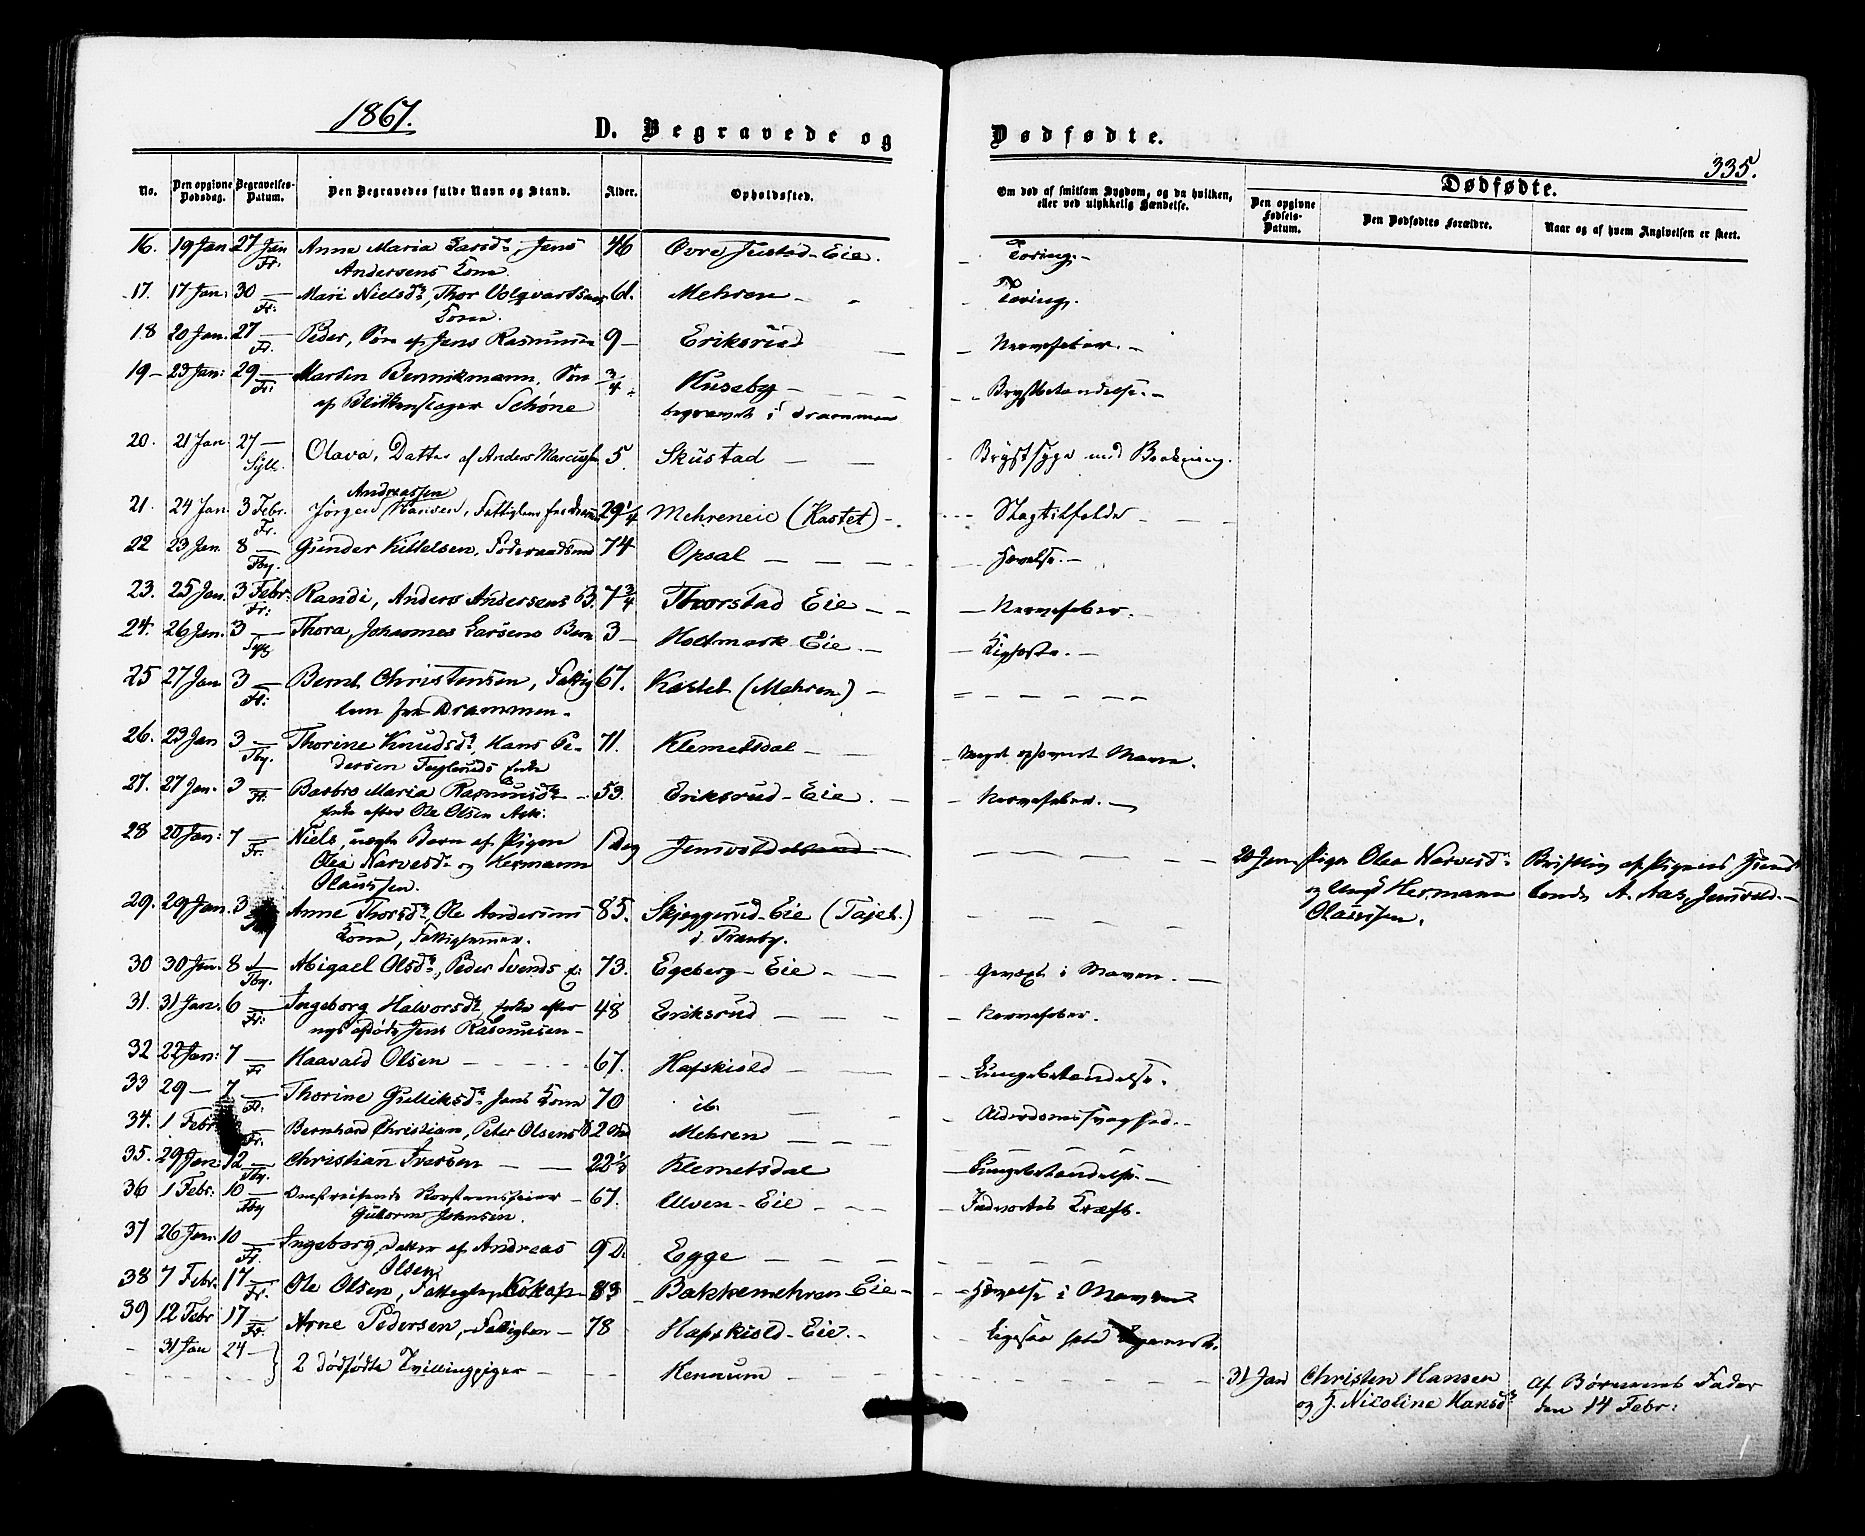 1867.
D. Begravede og
Dødfødte.
335.
No.
Den opgivne Dødsdag.
Begravelses-Datum.
Den Begravedes fulde Navn og Stand.
Alder.
Opholdssted.
Om død af smitsom Sygdom, og da hvilken, eller ved ulykkelig Hændelse.
Dødfødte.
Den opgivne Fødsels-Datum.
Den Dødfødtes Forældre.
Naar og af hvem Angivelsen er skeet.
16. 19 Jan 27 Jan Anne Maria Larsd., Jens 46 Øvre Justad-Eie. Tæring.
Fr: Andersens Kone.
17. 17 Jan: 30 — Mari Nielsd., Thor Volqvartsens 61. Mehren Tæring.
Fr: Kone.
18 20 Jan. 27 — Peder, Søn af Jens Rasmussen 9 — Eriksrud Nervefeber.
Fr.
19 — 23 Jan: 29 — Marten Bennikmann, Søn 3/4 Huseby Brystbetændelse.
Fr: af Blikkenslager Schøne begravet i Drammen
20. 21 Jan. 27 — Olava, Datter af Anders Marcussen 5. Skustad Brystsyge med Brækning.
Syll.
Andreassen
21. 24 Jan 3 Febr. Jørgen Hansen, Fattiglem fra Dramm 29 1/4 Mehreneie (Kastet) Slagtilfælde
Fr.
22 23 Jan. 8 — Gunder Kittelsen, Føderaadsmd 74 Opsal Hævelse.
Tby.
23. 25 Jan. 3 Febr: Randi, Anders Andersens B. 7 3/4 Thorstad Eie Nervefeber.
Fr:
24. 26 Jan. 3 — Thora, Johannes Larsens Barn 3 — Holtmark Eie. Kighoste.
Syll
25 27 Jan 3 — Bernt Christensen, Fattig 67. Kastet (Mehren)
Fr: lem fra Drammen.
26. 23 Jan 3 — Thorine Knudsd., Hans Pe- 71. Klemetsdal Meget ophovnet Maven.
Tby. dersen Fugleruds Enke
27. 27 Jan. 3 — Barbro Maria Rasmusd. 53. Eriksrud-Eie. Nervefeber.
Fr. Enke efter Ole Olsen Ask.
28 20 Jan: 7 — Niels, uægte Barn af Pigen 1 Dag Jensvold 20 Jan. Pige Olea Narvesd. Bristling af Pigens Huus
Fr. Olea Narvesd. og Hermann og Ungk Hermann bonde A. Aas, Jensvold.
Olaussen. Olaussen.
29. 29 Jan. 3 Anne Thorsd., Ole Andersens 85. Skjeggerud-Eie (Tajet.)
Kone, Fattiglemmer. i Tranby.
30 30 Jan. 8 — Abigael Olsd., Peder Svends E: 73. Egeberg-Eie Gevæxt i Maven.
Tby.
31. 31 Jan. 6 — Ingeborg Halvorsd., Enke efter 48 Eriksrud Nervefeber.
Fr: nys afdøde Jens Rasmussen
32 22 Jan: 7 — Haavald Olsen 67. Hafskiold Lungebetændelse.
Fr
33 29 — 7 — Thorine Gulliksd. Jens Kone 70 ib. Alderdomssvaghed.
Fr.
34. 1 Febr Bernhard Christian, Peter Olsens B 2 Md Mehren
Fr.
35. 29 Jan. 12 — Christian Iversen 22 1/3 Klemetsdal Lungebetændelse.
Tby.
36 1 Febr. 10 — Omstreifende Skorsteensfeier 67. Ulven-Eie Indvortes Kræft.
Tby Guttorm Johnsen.
37 26 Jan: 10 — Ingeborg, Datter af Andreas 9 D. Egge
Fr. Olsen
38 7 Febr. 17 — Ole Olsen, Fattiglem, 83 Bakkemehren-Eie Hævelse i Maven
Fr.
39 12 Febr 17 — Arne Pedersen, Fattiglem 78 Hafskiold-Eie. Ligesaa
Fr.
31 Jan 24 — 2 dødfødte Tvillingpiger Kennum 31 Jan Christen Hansen Af Børnenes Fader
og J. Nicoline Hansd. den 14 Febr: